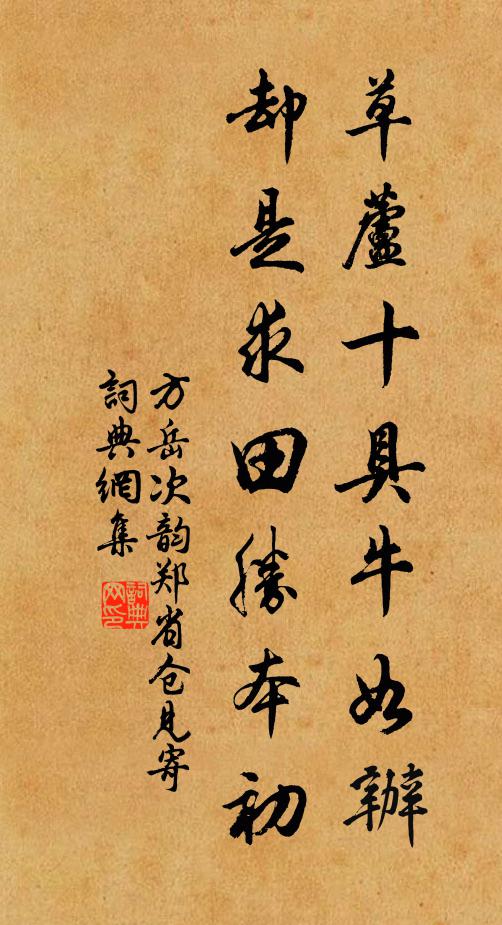 草蘆十具牛如辦
却是求田勝本初
方岳次韵郑省仓見寄
詞典網集
詞典网印